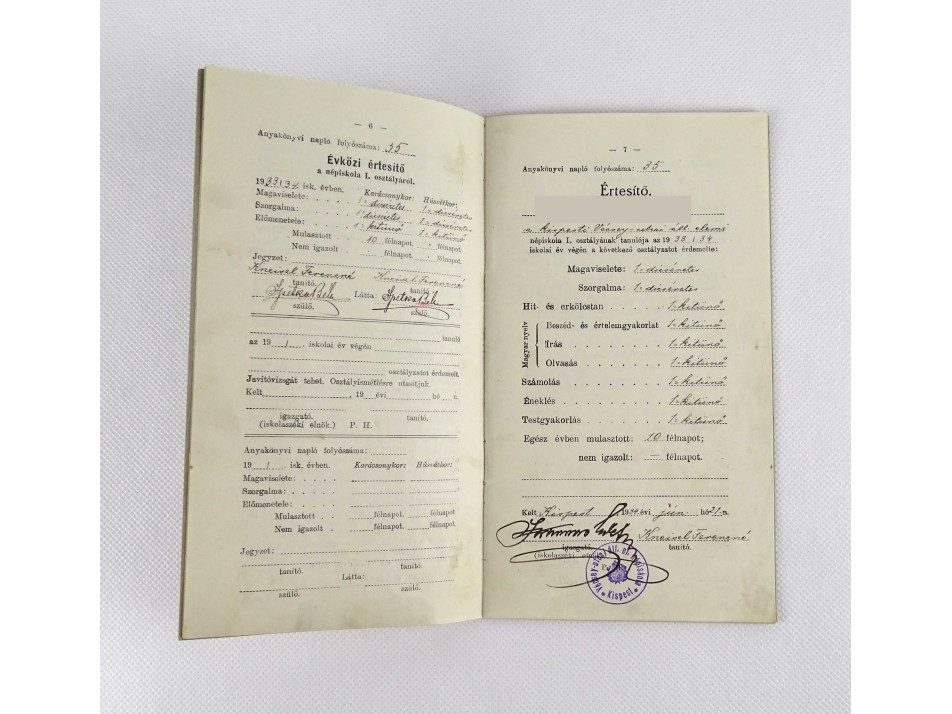 — 6 —
Anyakönyvi napló folyószáma: 35
Évközi értesítő
a népiskola I. osztályáról.
1933/34 isk. évben. Karácsonykor: Húsvétkor:
Magaviselete: . . . . 1-dicséretes 1-dicséretes
Szorgalma: . . . . 1-dicséretes 1-dicséretes
Előmenetele: . . . . 1-kitünő 1-kitünő
Mulasztott . . . . 10 félnapot. félnapot.
Nem igazolt . . — félnapot. félnapot.
Jegyzet:
Kneisel Ferencné Kneisel Ferencné
tanító. tanító.
Spetka Béla Látta: Spetka Béla
szülő. szülő.
tanuló
az 19 / iskolai év végén
osztályzatot érdemelt.
Javítóvizsgát tehet. Osztályismétlésre utasítjuk.
Kelt, , 19 évi hó n.
igazgató. tanító.
(iskolaszéki elnök.) P. H.
Anyakönyvi napló folyószáma:
19 / isk. évben. Karácsonykor: Húsvétkor:
Magaviselete: . . . .
Szorgalma: . . . .
Előmenetele: . . . .
Mulasztott . . félnapot. félnapot
Nem igazolt . félnapot. félnapot.
Jegyzet:
tanító. tanító.
Látta:
szülő. szülő.
— 7 —
Anyakönyvi napló folyószáma: 35
Értesítő.
a kispesti Vécsey-utcai áll. elemi
népiskola I. osztályának tanulója az 1933/34
iskolai év végén a következő osztályzatot érdemelte:
Magaviselete: 1-dicséretes
Szorgalma: 1-dicséretes
Hit- és erkölcstan . . . . . 1-kitünő
Magyar nyelv
Beszéd- és értelemgyakorlat 1-kitünő
Írás . . . . . . . 1-kitünő
Olvasás . . . . . . 1-kitünő
Számolás . . . . . . . 1-kitünő
Éneklés . . . . . . . 1-kitünő
Testgyakorlás . . . . . 1-kitünő
Egész évben mulasztott: 10 félnapot;
nem igazolt: — félnapot.
Kelt Kispest, 1934. évi jún. hó 21-n.
Kneisel Ferencné
igazgató. tanító.
(iskolaszéki elnök)
P.
Vécsey-utcai áll. el. népiskola * Kispest *